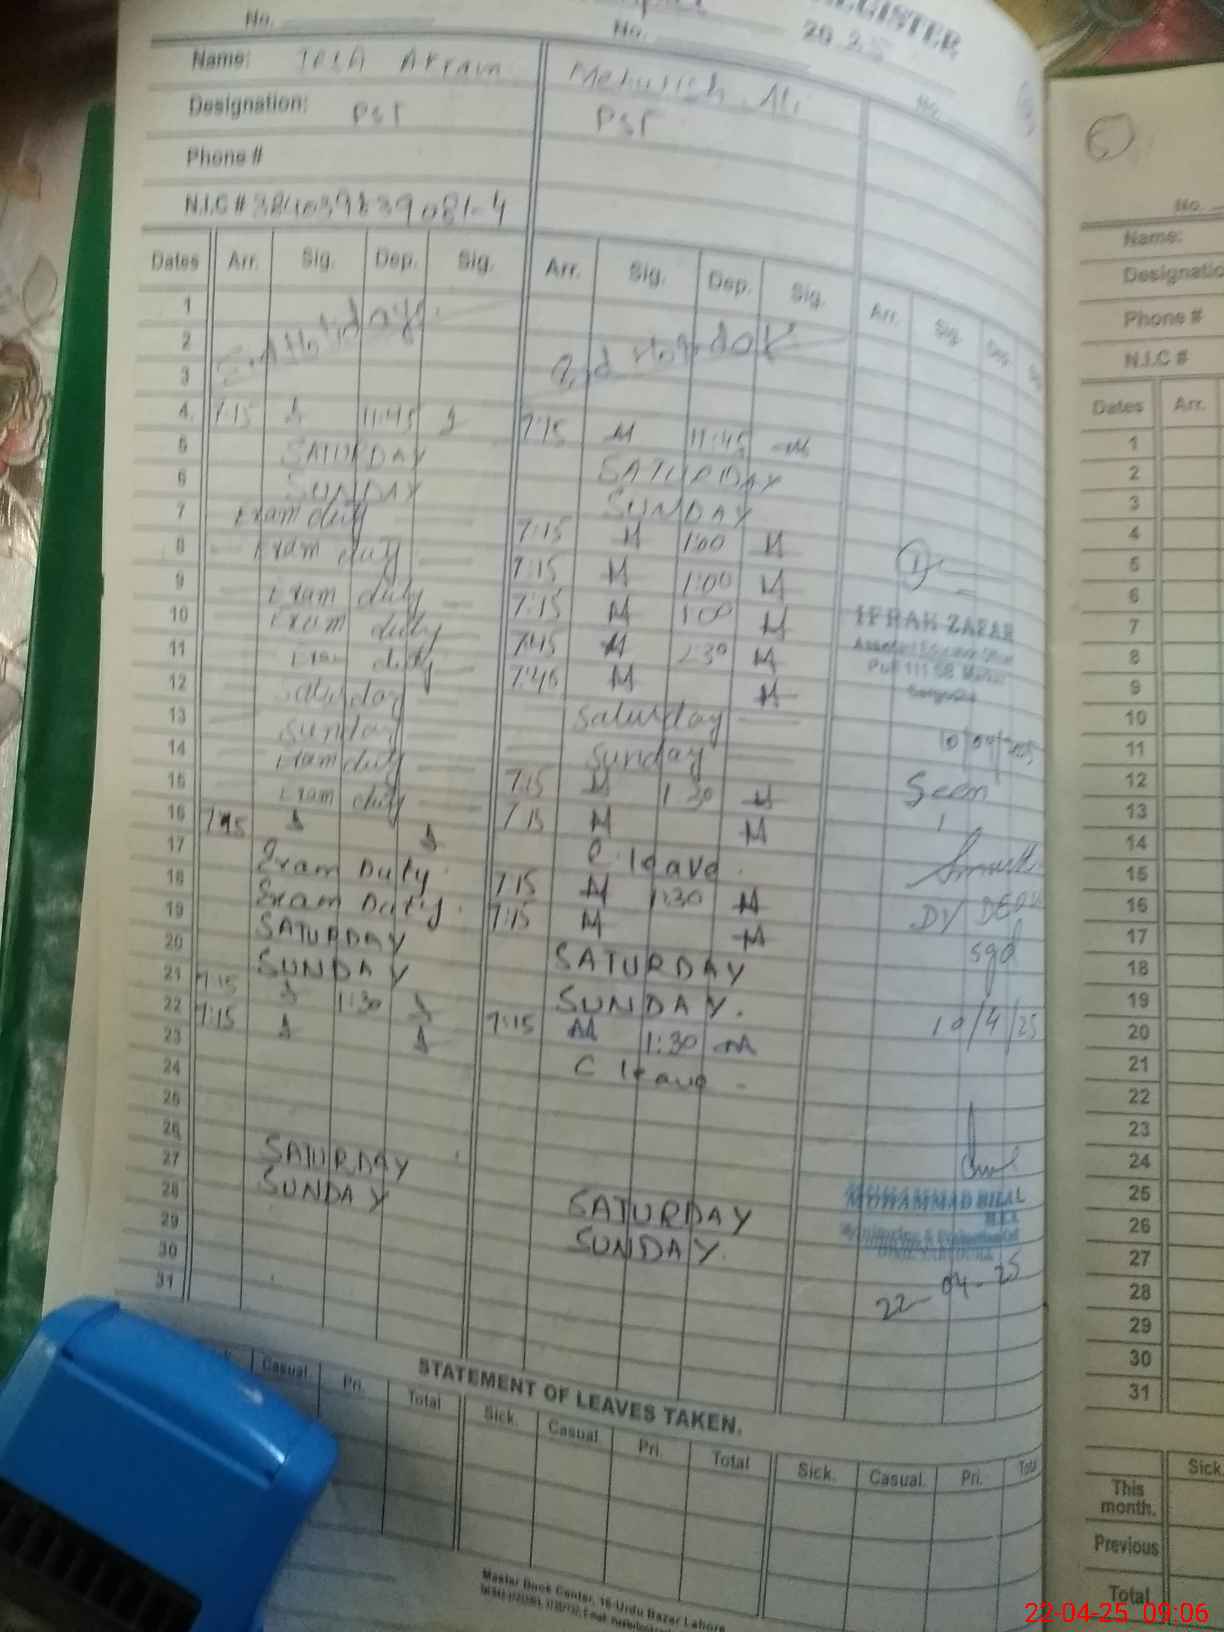 REGISTER
No. No. 2025
Name: Akram Mehwish Ali
Designation: PST PST
Phone #
N.I.C #
Dates Arr. Sig. Dep. Sig. Arr. Sig. Dep. Sig. Arr. Sig. Dep.
1
2 Eid Holidays. Eid Holidays
3
4 7:15 11:45 7:15 M 11:45 M
5 SATURDAY SATURDAY
6 SUNDAY SUNDAY
7 Exam duty 7:15 M 1:00 M
8 Exam duty 7:15 M 1:00 M
9 Exam duty 7:15 M 1:00 M
10 Exam duty 7:45 M M
11 Exam duty 7:45 M M
12 Saturday Saturday
13 Sunday Sunday
14 Exam duty 7:15 M 1:30 M
15 Exam duty 7:15 M M
16 C. leave.
17 Exam Duty. 7:15 M 1:30 M
18 Exam Duty. 7:15 M M
19 SATURDAY SATURDAY
20 SUNDAY SUNDAY.
21 7:15 1:30 7:15 M 1:30 M
22 7:15 C leave -
23
24
25
26 SATURDAY SATURDAY
27 SUNDAY SUNDAY.
28
29
30
31
IFRAH ZAFAR
Seen
DY DEO
sgd
10/4/25
MUHAMMAD BILAL
22-04-25
STATEMENT OF LEAVES TAKEN.
Casual Pri. Total Sick. Casual Pri. Total Sick. Casual. Pri. Total
Master Book Center, 16-Urdu Bazar Lahore
No.
Name:
Designatio
Phone #
N.I.C #
Dates Arr.
1
2
3
4
5
6
7
8
9
10
11
12
13
14
15
16
17
18
19
20
21
22
23
24
25
26
27
28
29
30
31
Sick
This
month.
Previous
Total
22-04-25 09:06